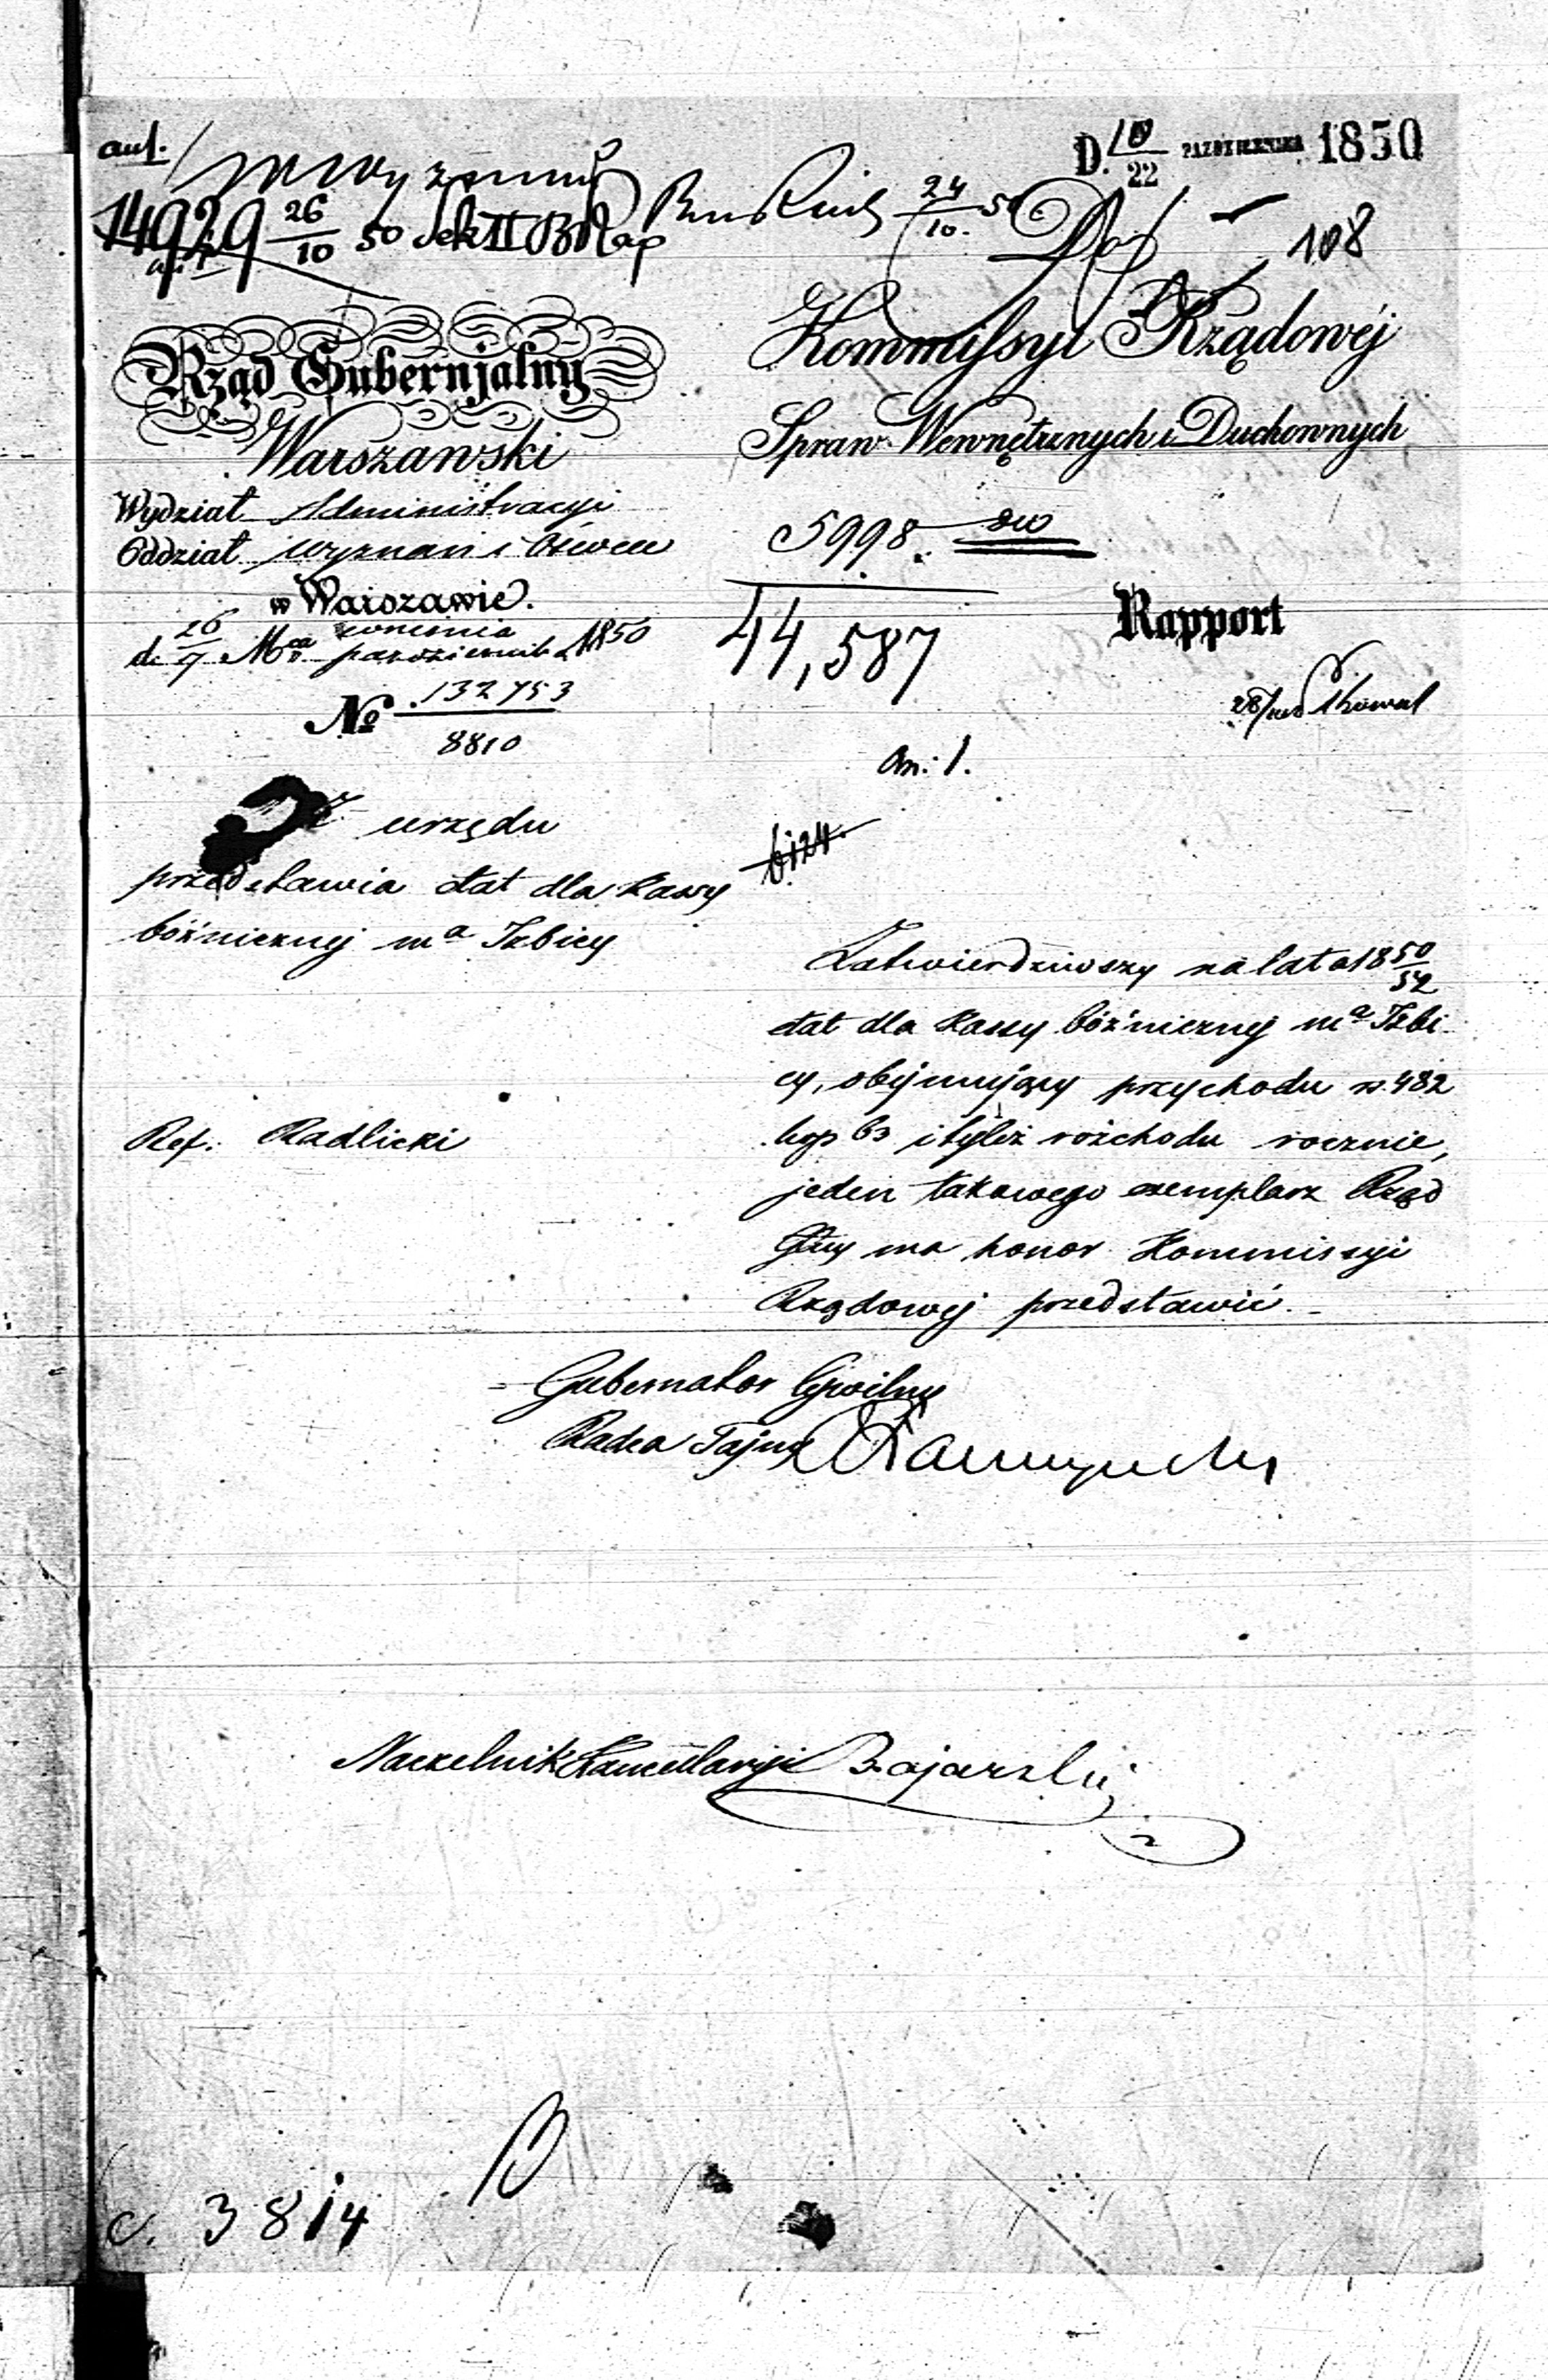 D. 10/22 PAZDZIERNIKA 1850
14929 26/10 50 Sek II B Rap
24/10. 50
108
Rząd Gubernjalny
Warszawski
Wydział Administracyi
Oddział Wyznań i Oświec
w Warszawie.
d. 26/7 Mca września/października 1850
№ 132753/8810
Kommissyi Rządowéj
Spraw Wewnętrznych i Duchownych
5998.
44,587
Rapport
An: 1.
Z urzędu
przedstawia etat dla kassy
bóźnicznej ma Izbicy
6124.
Zatwierdziwszy na lata 1850/52
etat dla kassy bóźnicznej ma Izbi
cy, obejmujący przychodu rs. 482
kop 63 i tyleż rozchodu rocznie,
jeden takowego exemplarz Rząd
Gny ma honor Kommissyi
Rządowej przedstawić.
Ref: Radlicki
Gubernator Cywilny
Radca Tajny
Naczelnik Kancellaryi
c. 3814